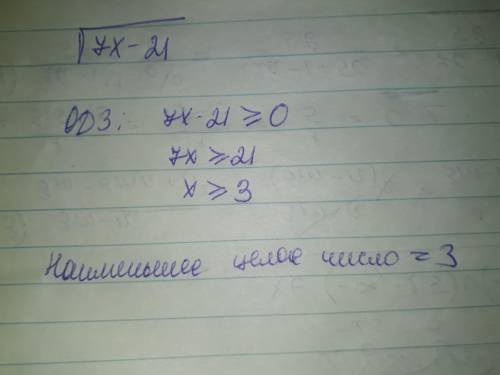 √7x-21
ОДЗ: 7x-21 ⩾ 0
7x ⩾ 21
x ⩾ 3
Наименьшее целое число = 3